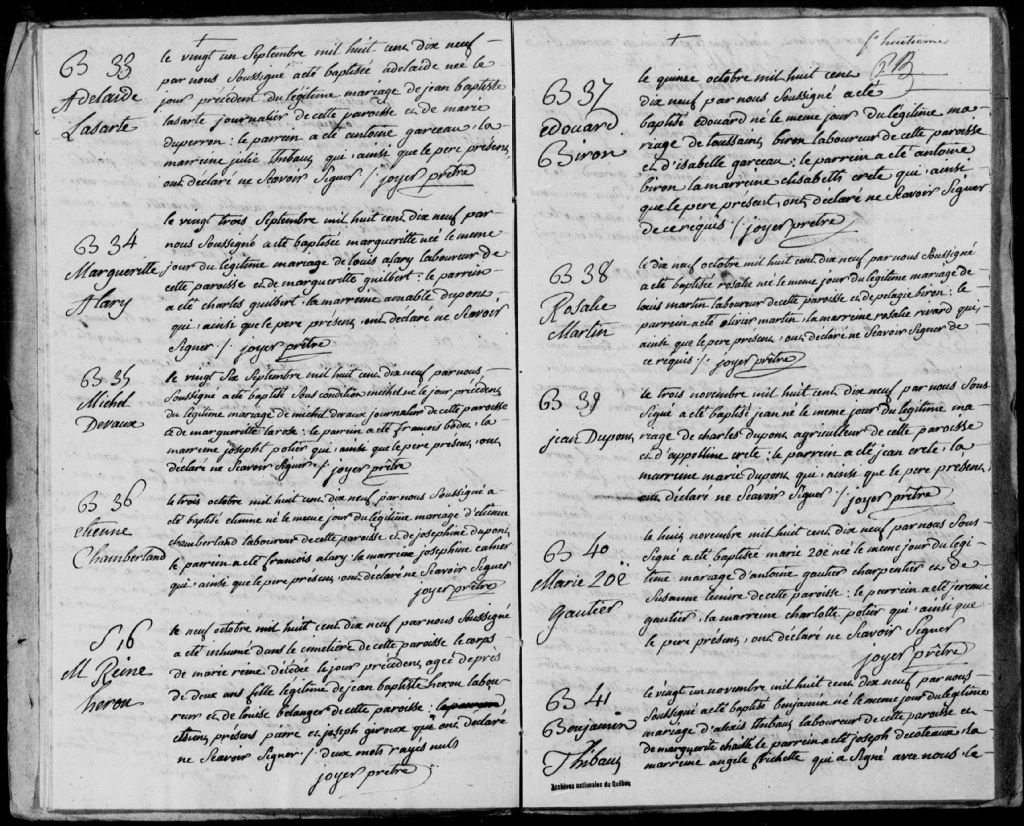 B 33
Adelaide
Lasarte
le vingt un Septembre mil huit cent dix neuf
par nous Soussigné a été baptisée adelaide née le
jour précédent du légitime mariage de jean baptiste
lasarte journalier de cette paroisse et de marie
duperron : le parrein a été antoine garceau, la
marreine julie thibaut qui, ainsi que le pere present,
ont déclaré ne Scavoir Signer /. joyer prêtre
B 34
Margueritte
Alary
le vingt trois Septembre mil huit cent dix neuf par
nous Soussigné a été baptisée margueritte née le meme
jour du légitime mariage de louis alary laboureur de
cette paroisse et de margueritte guilbert : le parrein
a été charles guilbert, la marreine amable dupont
qui, ainsi que le pere présent, ont déclaré ne Scavoir
Signer /. joyer prêtre
B 35
Michel
Devaux
le vingt Six Septembre mil huit cent dix neuf par nous
Soussigné a été baptisé Sous condition michel né le jour précédent
du légitime mariage de michel devaux journalier de cette paroisse
et de margueritte larose : le parrein a été francois
la
marreine josepht potier qui, ainsi que le pere present, ont
déclaré ne Scavoir Signer /. joyer prêtre
B 36
etienne
Chamberland
le trois octobre mil huit cent dix neuf par nous Soussigné a
été baptisé etienne né le meme jour du légitime mariage d'etienne
chamberland laboureur de cette paroisse et de josephine dupont,
le parrein a été francois alary la marreine josephine
qui, ainsi que le pere present, ont déclaré ne Scavoir Signer
joyer prêtre
S 16
M Reine
herou
le neuf octobre mil huit cent dix neuf par nous Soussigné
a été inhumé dans le cimetiere de cette paroisse le corps
de marie reine décédée le jour précédent, agée de près
de deux ans fille légitime de jean baptiste herou labou-
reur et de louise belanger de cette paroisse :
présent pierre et joseph giroux qui ont déclaré
ne Scavoir Signer /. deux mots rayés nuls
joyer pretre
fo huitieme
B 37
edouard
Biron
le quinze octobre mil huit cent
dix neuf par nous Soussigné a été
baptisé edouard né le meme jour du légitime ma-
riage de toussaint biron laboureur de cette paroisse
et d'isabelle garceau : le parrein a été antoine
biron la marreine elisabeth crete qui, ainsi
que le pere présent, ont déclaré ne Scavoir Signer
de ce requis /. joyer prêtre
B 38
Rosalie
Martin
le dix neuf octobre mil huit cent dix neuf par nous Soussigné
a été baptisée rosalie née le meme jour du légitime mariage de
louis martin laboureur de cette paroisse et de pelagie biron : le
parrein a été olivier martin, la marreine rosalie rivard qui,
ainsi que le pere present, ont déclaré ne Scavoir Signer de
ce requis /. joyer prêtre
B 39
jean Dupont
le trois novembre mil huit cent dix neuf par nous Sous-
Signé a été baptisé jean né le meme jour du légitime ma-
riage de charles dupont agriculteur de cette paroisse
et d'appolline crete : le parrein a été jean crete, la
marreine marie dupont qui, ainsi que le pere present,
ont déclaré ne Scavoir Signer /. joyer prêtre
B 40
Marie Zoë
Gautier
le huit novembre mil huit cent dix neuf par nous Sous-
Signé a été baptisée marie zoë née le meme jour du legi-
time mariage d'antoine gautier charpentier et de
Susanne de cette paroisse : le parrein a été jeremie
gautier, la marreine charlotte potier qui, ainsi que
le pere present, ont déclaré ne Scavoir Signer
joyer prêtre
B 41
Benjamin
Thibaut
le vingt un novembre mil huit cent dix neuf par nous
Soussigné a été baptisé benjamin né le meme jour du légitime
mariage d'alexis thibaut laboureur de cette paroisse et
de marguerite le parrein a été joseph decoteaux, la
marreine angele frichette qui a Signé avec nous le
Archives nationales du Québec